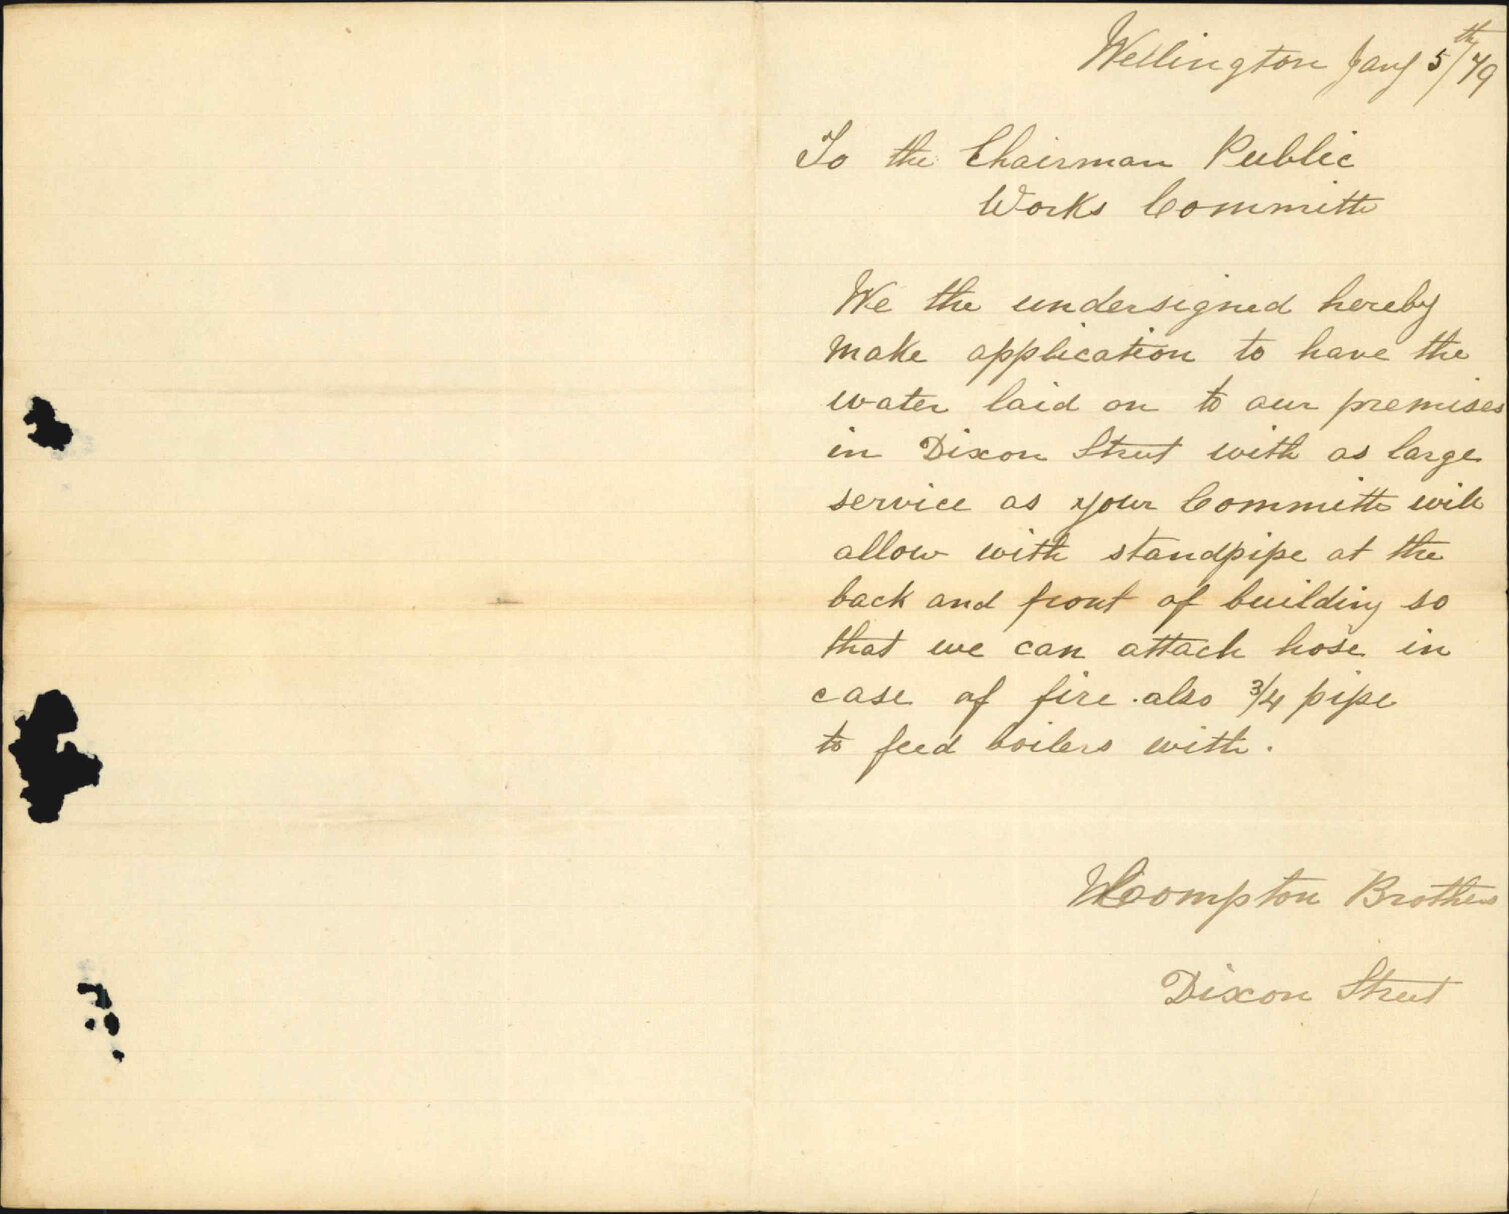 Wellington Jany 5th/79
To the Chairman Public
Works Committe
We the undersigned hereby
make application to have the
water laid on to our premises
in Dixon Street with as large
service as your Committe will
allow with standpipe at the
back and front of building so
that we can attach hose in
case of fire. also 3/4 pipe
to feed boilers with.
Compton Brothers
Dixon Street